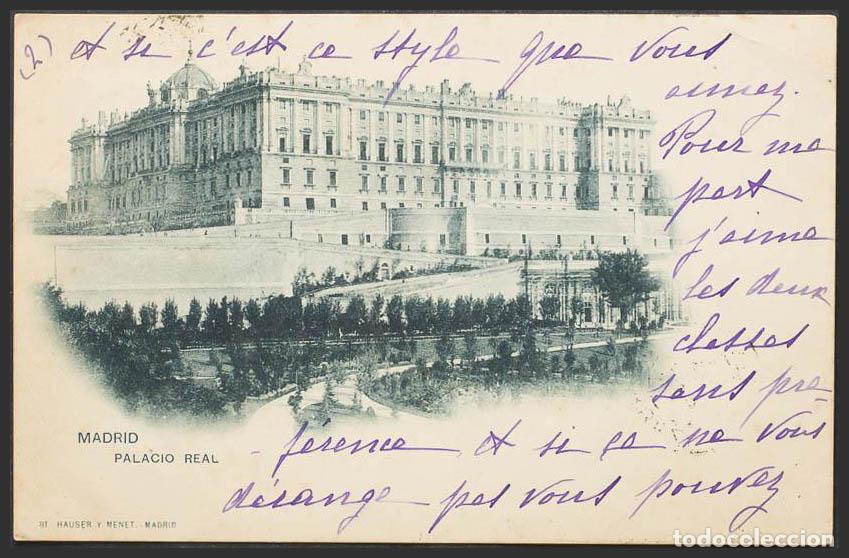 (2) et si c'est ce style que vous
aimez.
Pour ma
part
j'aime
les deux
classes
sans pré-
férence et si ça ne vous
dérange pas vous pouvez
MADRID
PALACIO REAL
81 HAUSER Y MENET.-MADRID
todocoleccion